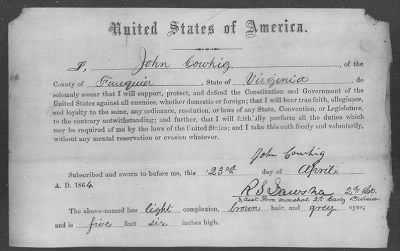 United States of America.
I, John Cowhig, of the
County of Fauquier, State of Virginia do
solemnly swear that I will support, protect, and defend the Constitution and Government of the
United States against all enemies, whether domestic or foreign; that I will bear true faith, allegiance,
and loyalty to the same, any ordinance, resolution, or laws of any State, Convention, or Legislature,
to the contrary notwithstanding; and further, that I will faithfully perform all the duties which
may be required of me by the laws of the United States; and I take this oath freely and voluntarily,
without any mental reservation or evasion whatever.
John Cowhig
Subscribed and sworn to before me, this 23rd day of April
A. D. 1864
2nd Lt.
Marshal 2d Cavy Division
The above-named has light complexion, brown hair, and grey eyes;
and is five feet six inches high.